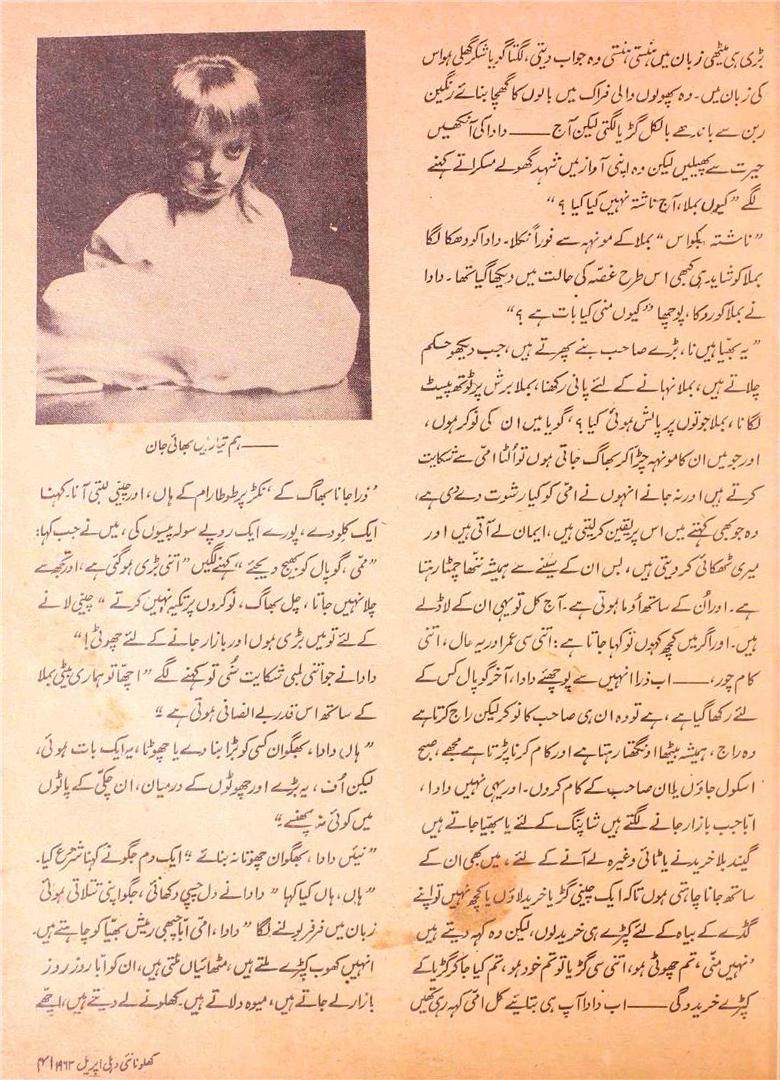 بڑی ہی میٹھی زبان میں ہنستی ہنستی وہ جواب دیتی، لگتا گویا شکر گھلی ہو اس
کی زبان میں۔ وہ پھولوں والی فراک میں بالوں کا گچھا بنائے رنگین
ربن سے باندھے بالکل گڑیا لگتی لیکن آج ــــــ دادا کی آنکھیں
حیرت سے پھیلیں لیکن وہ اپنی آواز میں شہد گھولے مسکراتے کہنے
لگے ”کیوں بملا، آج ناشتہ نہیں کیا کیا ؟“
”ناشتہ بکواس“ بملا کے مونہہ سے فوراً نکلا۔ دادا کو دھکا لگا
بملا کو شاید ہی کبھی اس طرح غصّہ کی حالت میں دیکھا گیا تھا۔ دادا
نے بملا کو روکا، پوچھا ”کیوں منی کیا بات ہے ؟“
”یہ بھیّا ہیں نا، بڑے صاحب بنے پھرتے ہیں، جب دیکھو حکم
چلاتے ہیں، بملا نہانے کے لئے پانی رکھنا، بملا برش پر ٹوتھ پیسٹ
لگانا، بملا جوتوں پر پالش ہوئی کیا ؟، گویا میں ان کی نوکر ہوں،
اور جو میں ان کا مونہہ چڑا کر بھاگ جاتی ہوں تو اُلٹا امّی سے شکایت
کرتے ہیں اور نہ جانے انہوں نے امّی کو کیا رشوت دے دی ہے،
وہ جو بھی کہتے ہیں اس پر یقین کر لیتی ہیں، ایمان لے آتی ہیں اور
میری ٹھکائی کر دیتی ہیں، بس ان کے سینے سے ہمیشہ ننّھا چمٹا رہتا
ہے۔ اور اُن کے ساتھ اُوما ہوتی ہے۔ آج کل تو یہی ان کے لاڈلے
ہیں۔ اور اگر میں کچھ کہوں تو کہا جاتا ہے: اتنی سی عمر اور یہ حال، اتنی
کام چور، ــــــ اب ذرا انہیں سے پوچھئے دادا، آخر گوپال کس کے
لئے رکھا گیا ہے، ہے تو وہ ان ہی صاحب کا نوکر لیکن راج کرتا ہے
وہ راج، ہمیشہ بیٹھا اونگھتا رہتا ہے اور کام کرنا پڑتا ہے مجھے، صبح
اسکول جاؤں یا ان صاحب کے کام کروں۔ اور یہی نہیں دادا،
ابّا جب بازار جانے لگتے ہیں شاپنگ کے لئے یا بھیّا جاتے ہیں
گیند بلا خریدنے یا ٹافی وغیرہ لے آنے کے لئے، میں بھی ان کے
ساتھ جانا چاہتی ہوں تاکہ ایک چینی گڑیا خرید لاؤں یا کچھ نہیں تو اپنے
گڈے کے بیاہ کے لئے کپڑے ہی خرید لوں، لیکن وہ کہہ دیتے ہیں
’نہیں منّی، تم چھوٹی ہو، اتنی سی گڑیا تو تم خود ہو، تم کیا جا کر گڑیا کے
کپڑے خریدو گی ــــــ اب دادا آپ ہی بتایئے کل امّی کہہ رہی تھیں
ــــــ ہم تیار ہیں بھائی جان
’ذرا جانا سبھاگ کے نکڑ پر طوطا رام کے ہاں، اور چینی لیتی آنا۔ کہنا
ایک کلو دے، پورے ایک روپے سولہ پیسوں کی، میں نے جب کہا:
”ممّی، گوپال کو بھیج دیجئے“ کہنے لگیں ”اتنی بڑی ہو گئی ہے، اور تجھ سے
چلا نہیں جاتا، چل بھاگ، نوکروں پر تکیہ نہیں کرتے“ چینی لانے
کے لئے تو میں بڑی ہوں اور بازار جانے کے لئے چھوٹی!“
دادا نے جو اتنی لمبی شکایت سُنی تو کہنے لگے ”اچھّا تو ہماری بیٹی بملا
کے ساتھ اس قدر بے انصافی ہوتی ہے۔“
”ہاں دادا، بھگوان کسی کو بڑا بنا دے یا چھوٹا، یہ ایک بات ہوئی،
لیکن اُف، یہ بڑے اور چھوٹوں کے درمیان، ان چکّی کے پاٹوں
میں کوئی نہ پھنسے۔“
”نیئں دادا، بھگوان چھوتا نہ بنائے“ ایک دم جگو نے کہنا شروع کیا۔
”ہاں، ہاں کیا کہا“ دادا نے دل چسپی دکھائی، جگو اپنی تتلاتی ہوئی
زبان میں فرفر بولنے لگا ”دادا، امّی ابّا چھبی ریش بھیّا کو چاہتے ہیں۔
انہیں کھوب کپڑے ملتے ہیں، مٹھائیاں ملتی ہیں، ان کو ابّا روز روز
بازار لے جاتے ہیں، میوہ دلاتے ہیں۔ کھلونے لے دیتے ہیں، اچھّے
کھلونا نئی دہلی اپریل ۱۹۶۳ء